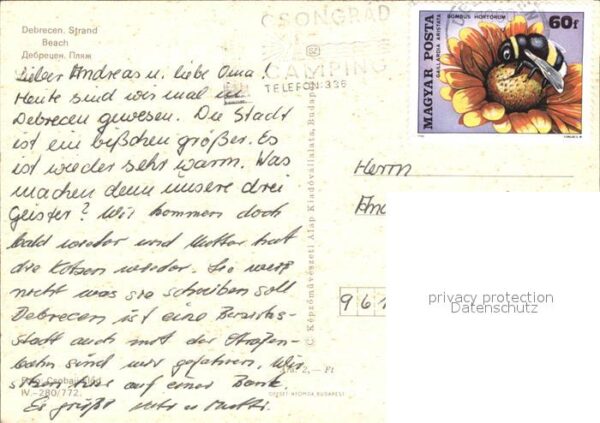 Debrecen. Strand
Beach
Дебрецен. Пляж
CSONGRÁD
CAMPING
TELEFON: 336
MAGYAR POSTA
GAILLARDIA ARISTATA
BOMBUS HORTORUM
60f
Lieber Andreas u. liebe Oma!
Heute sind wir mal in
Debrecen gewesen. Die Stadt
ist ein bißchen größer. Es
ist wieder sehr warm. Was
machen denn unsere drei
Geister? Wir kommen doch
bald wieder und Mutter hat
die Katzen wieder. Sie weiß
nicht was sie schreiben soll
Debrecen ist eine Bezirks-
stadt auch mit der Straßen-
bahn sind wir gefahren. Wir
sitzen hier auf einer Bank.
Es grüßt u Mutti.
Foto:
IV.-280/772.
© Képzőművészeti Alap Kiadóvállalata, Budapest
Ára: 2,— Ft
OFFSET NYOMDA BUDAPEST
Herrn
961
privacy protection
Datenschutz